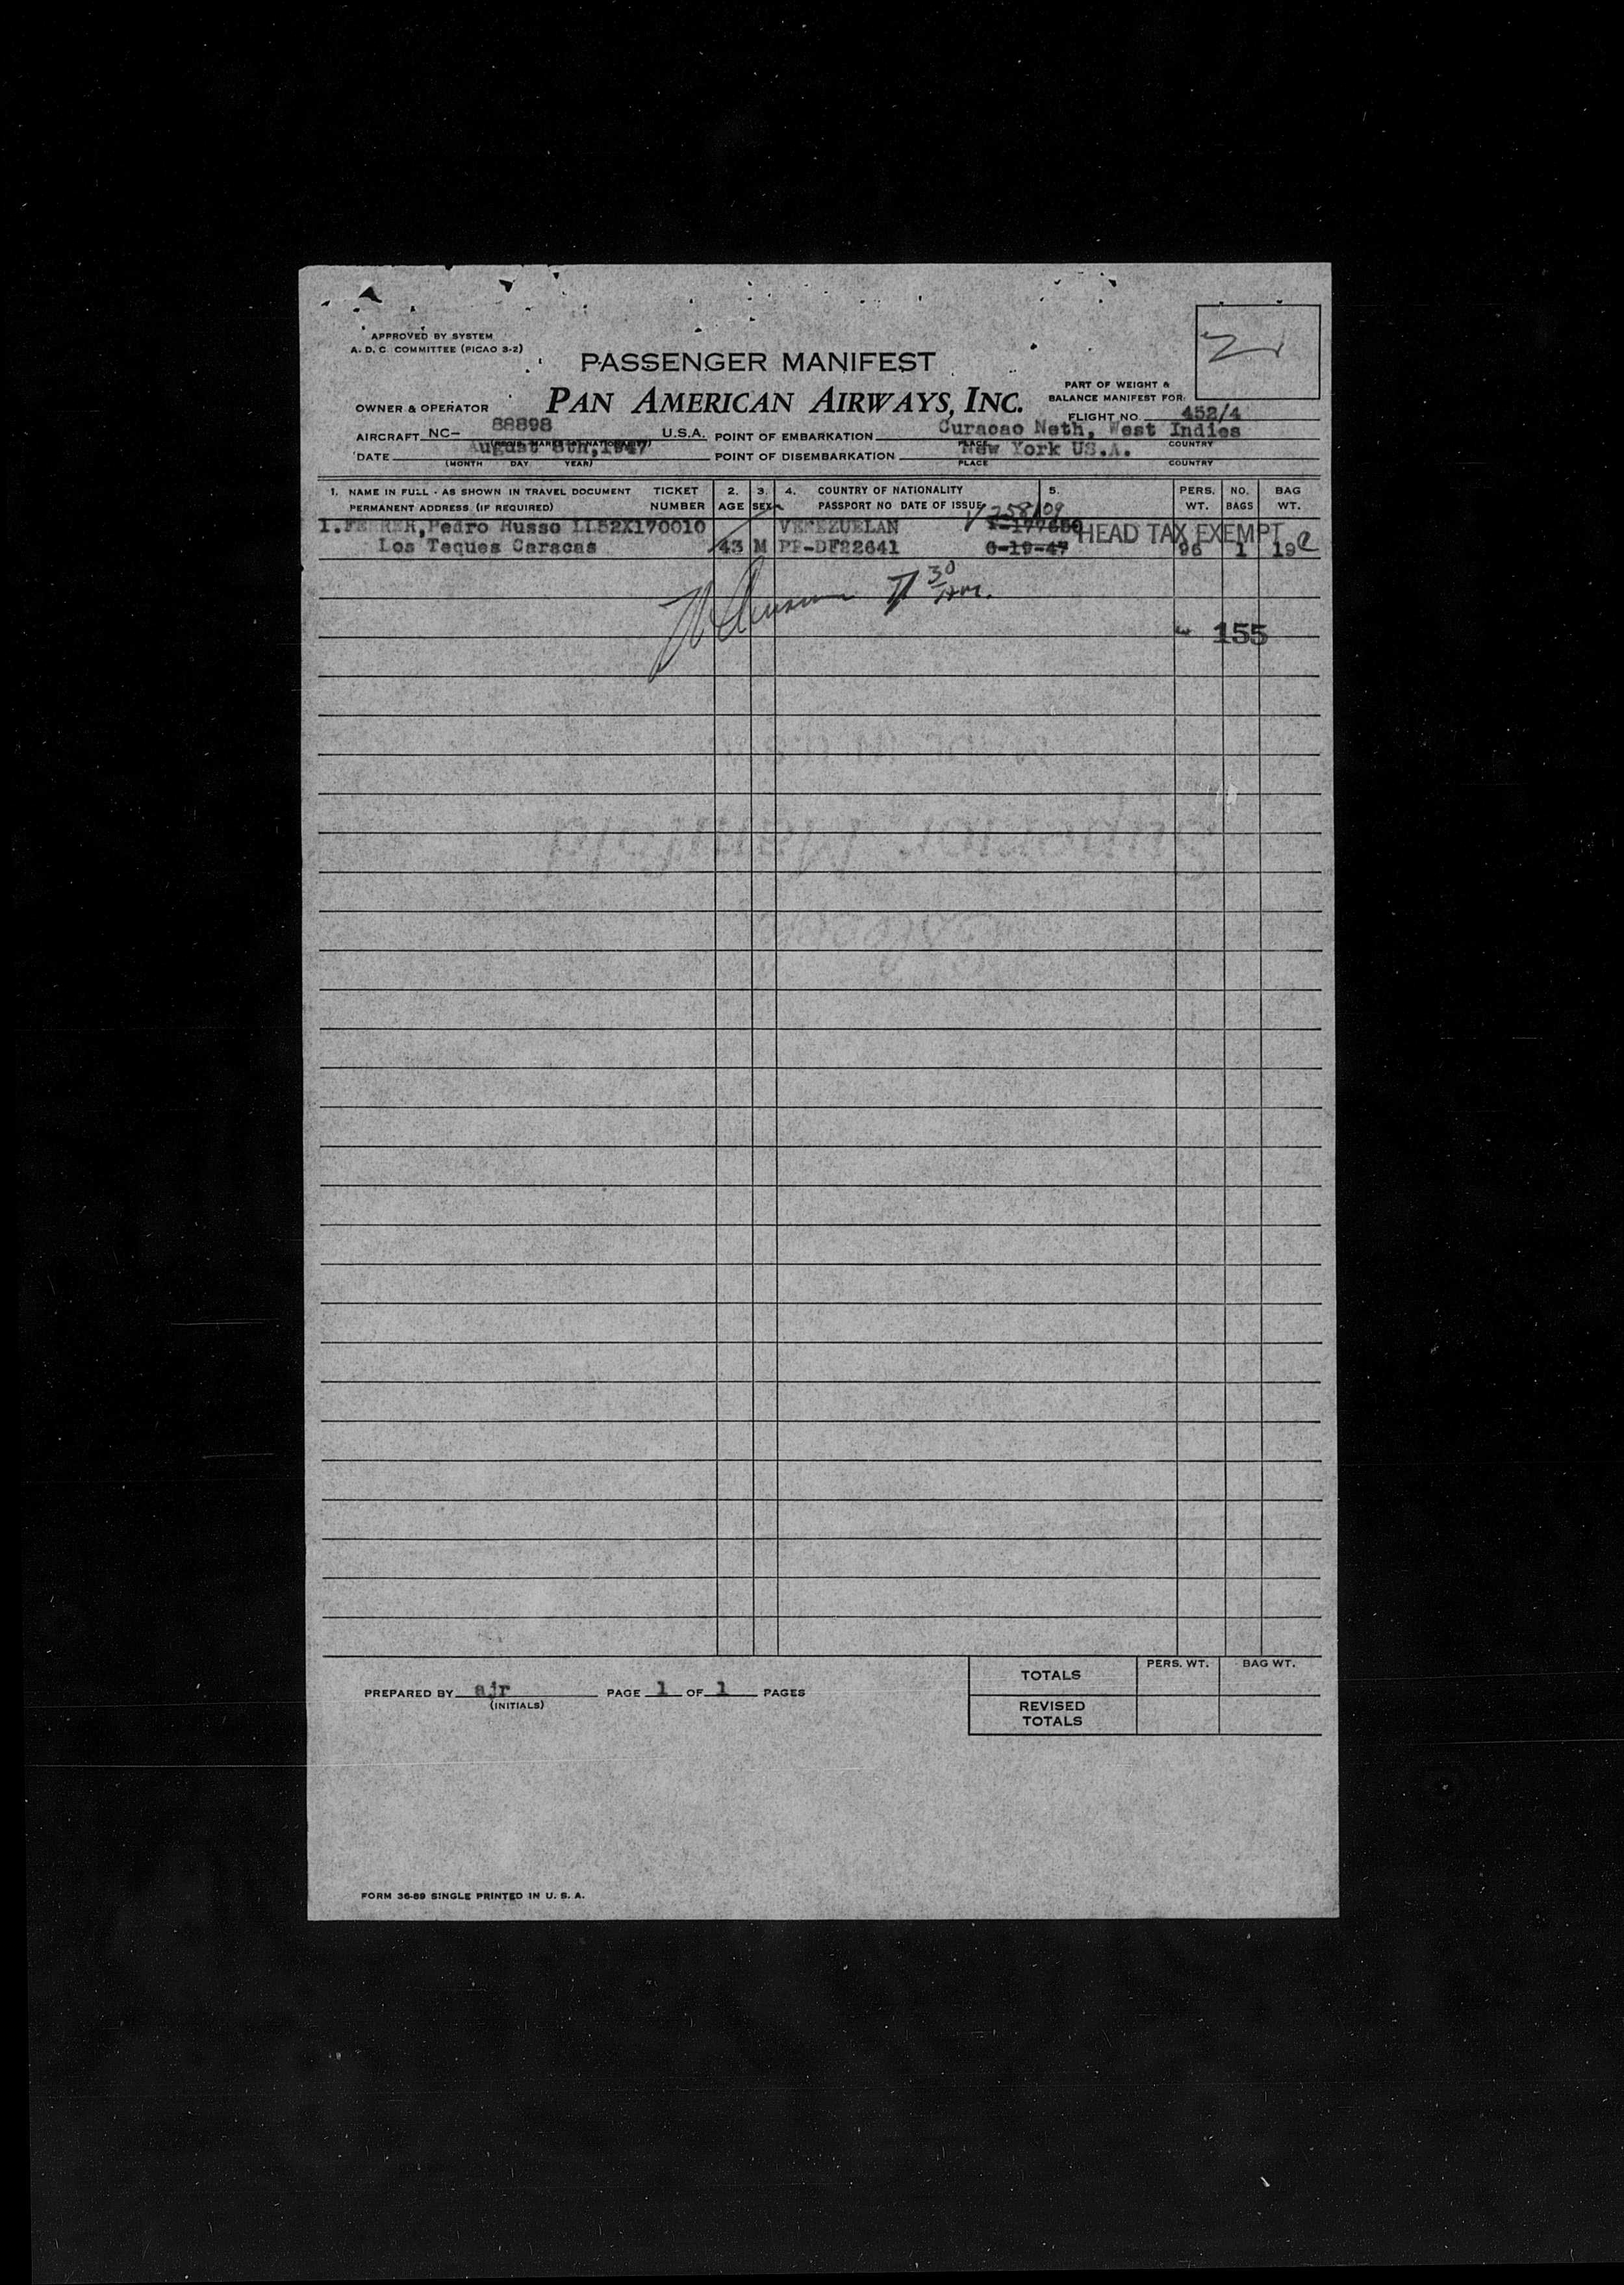 APPROVED BY SYSTEM
A. D. C. COMMITTEE (PICAO 3-2)
PASSENGER MANIFEST
PART OF WEIGHT &
BALANCE MANIFEST FOR:
OWNER & OPERATOR PAN AMERICAN AIRWAYS, INC.
FLIGHT NO. 452/4
AIRCRAFT NC- 88898 U.S.A. POINT OF EMBARKATION Curacao Neth, West Indies
PLACE COUNTRY
DATE August 8th, 1947 POINT OF DISEMBARKATION New York US.A.
(MONTH DAY YEAR) PLACE COUNTRY
1. NAME IN FULL - AS SHOWN IN TRAVEL DOCUMENT TICKET 2. 3. 4. COUNTRY OF NATIONALITY 5. PERS. NO. BAG
PERMANENT ADDRESS (IF REQUIRED) NUMBER AGE SEX PASSPORT NO DATE OF ISSUE WT. BAGS WT.
V 258109
1. FERRER, Pedro Husso LL52X170010 VENEZUELAN HEAD TAX EXEMPT
Los Teques Caracas 43 M PP-DF22641 6-19-47 96 1 19
7 30 AM.
155
MADE IN U.S.A.
Superior Manifold
TOTALS PERS. WT. BAG WT.
PREPARED BY ajr PAGE 1 OF 1 PAGES
(INITIALS)
REVISED
TOTALS
FORM 36-89 SINGLE PRINTED IN U. S. A.